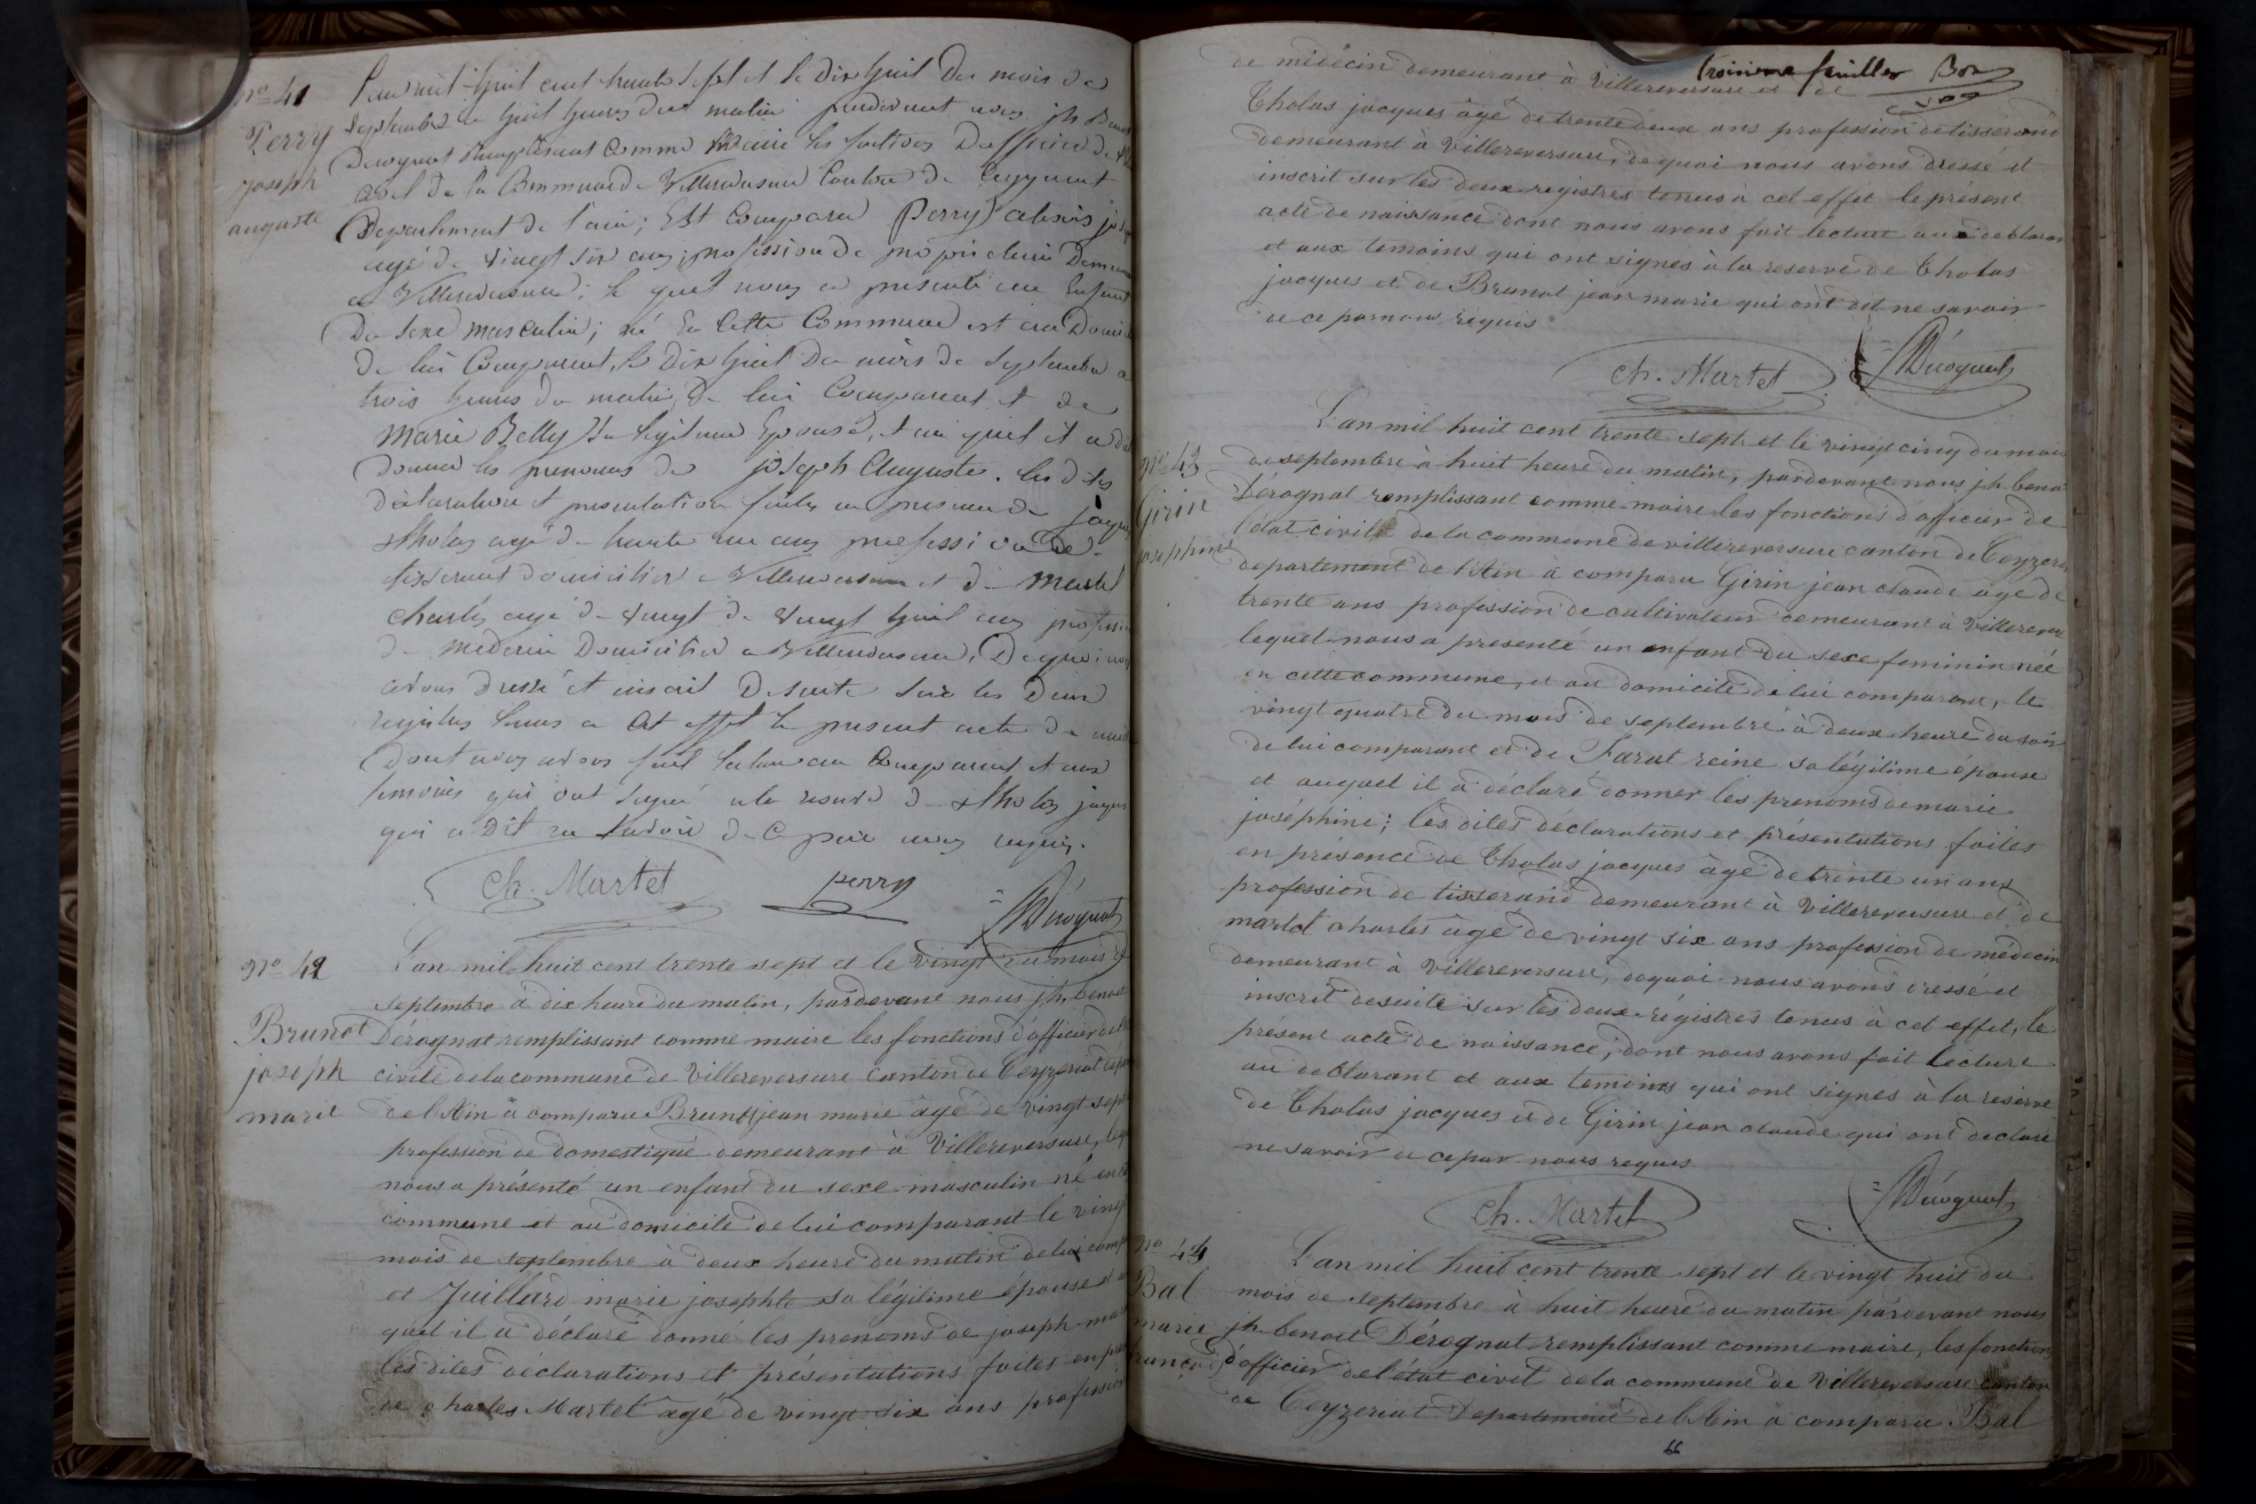 No 41
Perry
joseph
auguste
L'an mil huit cent trente sept et le dix huit du mois de
septembre a huit heures du matin pardevant nous jh Benoit
Derognat remplissant comme Maire les fonctions d'officier de
civil de la Commune de Villereversure Canton de Ceyzeriat
Departement de l'ain; Est Comparu Perry alexis
agé de vingt six ans, profession de propriétaire
a Villereversure; le quel nous a presenté un Enfant
du sexe masculin; né En Cette Commune et au
de lui Comparant, le dix huit du mois de septembre a
trois heures du matin, de lui Comparant et de
Marie Belly sa legitime Epouse, et au quel il a
donner les prenoms de joseph Auguste. les dites
declaration et presentation faites en presence de jacques
tholas agé de trente un ans profession de
tisserant domicilier a Villereversure et de Martel
Charles agé de vingt de vingt huit ans profession
de medecin Domicilier a Villereversure, De quoi nous
avons dressé et inscrit De suite sur les Deux
registres tenus a Cet effet le present acte de
dont nous avons fait lecture au Comparant et aux
temoins qui ont signé a la reserve de tholas jacques
qui a Dit ne savoir de Ce par nous requis.
Ch. Martel perry Dérognat
No 42
Brunot
joseph
marie
L'an mil huit cent trente sept et le vingt du mois de
septembre à dix heure du matin, pardevant nous jh. benoit
Dérognat remplissant comme maire les fonctions d'officier de
civile de la commune de Villereversure canton de Ceyzeriat
de l'Ain à comparu Brunot jean marie âgé de vingt sept
profession de domestique demeurant à Villereversure,
nous a présenté un enfant du sexe masculin né en
commune et au domicile de lui comparant le vingt
mois de septembre à deux heure du matin de lui
et Juillard marie josephte sa légitime épouse et
quel il a déclaré donné les prenoms de joseph marie
les dites déclarations et présentations faites en
de charles Martel agé de vingt six ans profession
troisième feuillet
de médecin demeurant à Villereversure et de
Tholas jacques âgé de trente deux ans profession de tisserand
demeurant à Villereversure, de quoi nous avons dressé et
inscrit sur les deux registres tenus à cet effet le présent
acte de naissance dont nous avons fait lecture au déclarant
et aux temoins qui ont signés à la reserve de Tholas
jacques et de Brunot jean marie qui ont dit ne savoir
de ce par nous réquis
Ch. Martel Dérognat
No 43
Girin
josephine
L'an mil huit cent trente sept et le vingt cinq du mois
de septembre à huit heure du matin, pardevant nous jh. benoit
Dérognat remplissant comme maire les fonctions d'officier de
l'état civil de la commune de villereversure canton de Ceyzeriat
departement de l'Ain à comparu Girin jean claude âgé de
trente ans profession de cultivateur demeurant à Villereversure
lequel nous a presenté un enfant du sexe feminin née
en cette commune, et au domicile de lui comparant, le
vingt quatre du mois de septembre à deux heure du soir
de lui comparant et de Farat reine sa légitime épouse
et auquel il a déclaré donner les prenoms de marie
joséphine; les dites declarations et présentations faites
en présence de Tholas jacques âgé de trente un ans
profession de tisserand demeurant à Villereversure et de
martel charles âgé de vingt six ans profession de médecin
demeurant à Villereversure, de quoi nous avons dressé et
inscrit de suite sur les deux régistres tenus à cet effet, le
présent acte de naissance, dont nous avons fait lecture
au déclarant et aux temoins qui ont signes à la réserve
de Tholas jacques et de Girin jean claude qui ont declaré
ne savoir de ce par nous requis
Ch. Martel Dérognat
No 44
Bal
marie
L'an mil huit cent trente sept et le vingt huit du
mois de septembre à huit heure du matin pardevant nous
jh benoit Dérognat remplissant comme maire, les fonctions
d'officier de l'état civil de la commune de Villereversure canton
de Ceyzeriat Departement de l'Ain à comparu Bal